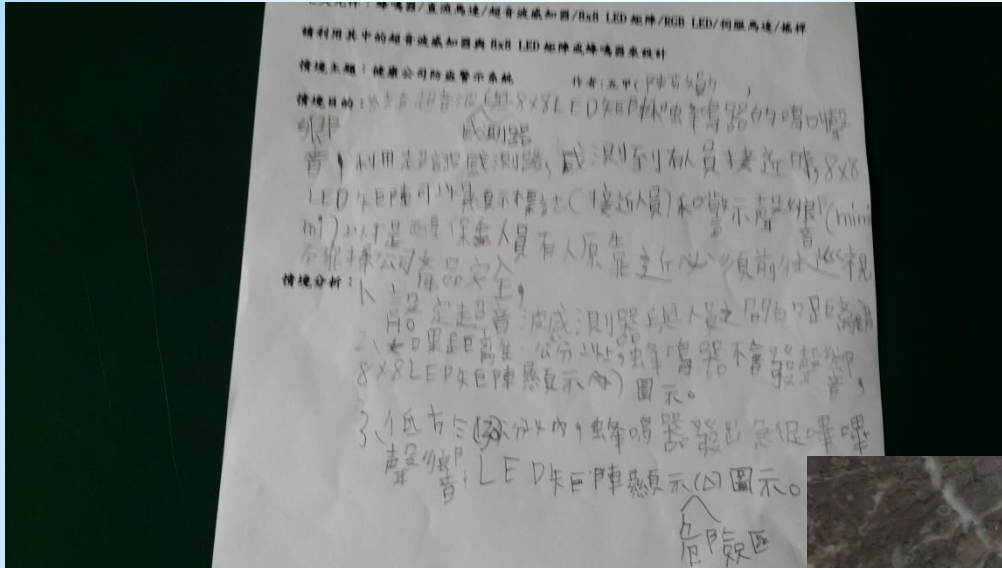 蜂鳴器/直流馬達/超音波感知器/8x8 LED 矩陣/RGB LED/伺服馬達/搖桿
請利用其中的超音波感知器與 8x8 LED 矩陣或蜂鳴器來設計
情境主題：健康公司防盜警示系統 作者:五甲( )
情境目的: 超音波與8×8LED矩陣 蜂鳴器的鳴叫聲
感測器
音,利用超音波感測器,感測到有人員接近時,8x8
LED矩陣可以顯示標誌(接近人員)和警示聲響音(mimi
mi)以提醒保全人員有人 靠近必須前往巡視
公司產品安全,
情境分析：1、設定超音波感測器與人員之間的距離
2、如果距離 公分以上,蜂鳴器不會發聲響音,
8×8LED矩陣顯示( )圖示。
3、低於 公分以內,蜂鳴器發出急促嗶嗶
聲響音;LED矩陣顯示(△)圖示。
危險區